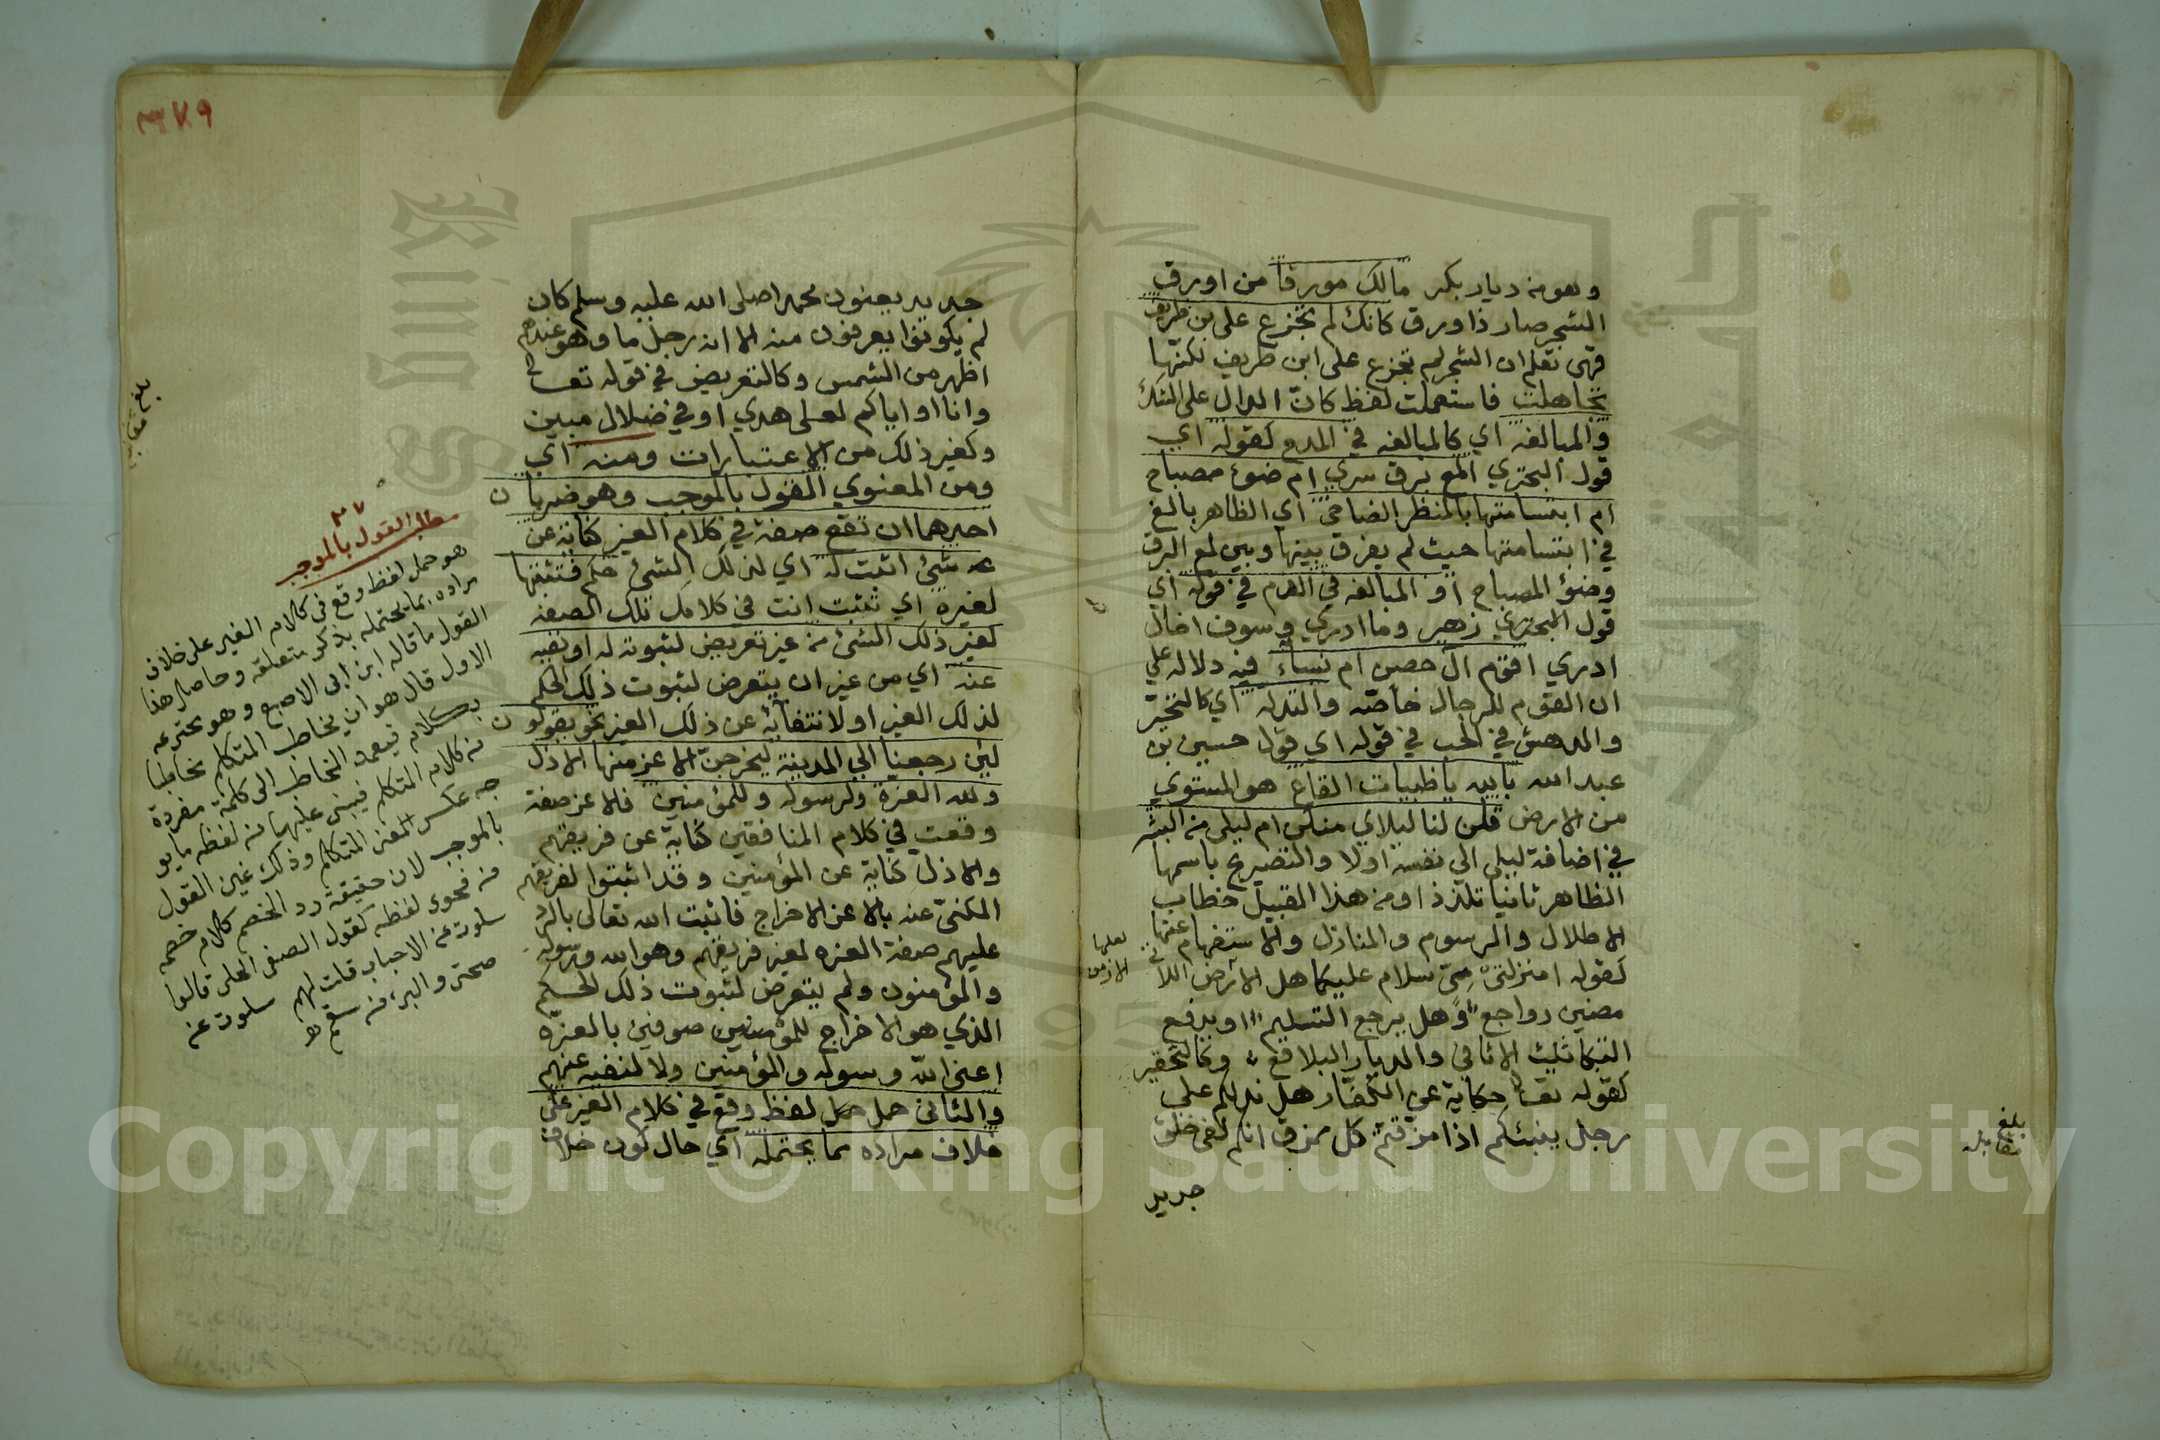 وهو من ديار بكر مالك مورقا من اورق
الشجر صار ذا ورق كانك لم تجزع على بن طريف
فهى تعلم ان الشجر لم تجزع على ابن طريف لكنها
تجاهلت فاستعملت لفظ كانّ الدال على الشك
والمبالغه اي كالمبالغه في المدح كقوله اي
قول البحتري المع برق سري ام ضوء مصباح
ام ابتسامتها بالمنظر الضاحي اي الظاهر بالغ
في ابتسامتها حيث لم يفرق بينها وبين لمع البرق
وضؤ المصباح او المبالغه في الذم في قوله اي
قول زهير وما ادري وسوف اخال
ادري اقوم ال حصن ام نساء فيه دلاله علي
ان القوم للرجال خاصّه والتدله اي كالتحيّر
والمدهش في الحب في قوله اي قول حسين بن
عبد الله بالله يا ظبيات القاع هو المستوي
من الارض قلن لنا ليلاي منكن ام ليلى من البشر
في اضافة ليلي الي نفسه اولا والتصريح باسمها
الظاهر ثانيا تلذذا ومن هذا القبيل خطاب
الاطلال والرسوم والمنازل والاستفهام عنها
كقوله امنزلتى مىّ سلام عليكما هل الازمن اللاتي
مضين رواجع وهل يرجع التسليم او يدفع
البكا ثلث الاثافي والديار البلاقع وكالتحقير
كقوله تعا حكاية عن الكفار هل ندلكم على
رجل ينبئكم اذا مزقتم كل ممزق انكم لفى خلق
جديد
لعلها
الازمن
بلغ
مقابله
٣٧٩
جديد يعنون محمدا صلى الله عليه وسلم كان
لم يكونوا يعرفون منه الا انه رجل ما وهو عندهم
اظهر من الشمس وكالتعريض في قوله تعا
وانا او اياكم لعلى هدي او في ضلال مبين
وكغير ذلك من الاعتبارات ومنه اي
ومن المعنوي القول بالموجب وهو ضربان
احدهما ان تقع صفة في كلام الغير كناية عن
عن شئ اثبت له اي لذلك الشئ حكم فتثبتها
لغيره اي تثبت انت في كلامك تلك الصفه
لغير ذلك الشئ من غير تعريض لثبوته له او نفيه
عنه اي من غير ان يتعرض لثبوت ذلك الحكم
لذلك الغير او لانتفائه عن ذلك الغير نحو يقولون
لئن رجعنا الي المدينة ليخرجنّ الاعز منها الاذل
ولله العزة ولرسوله وللمؤمنين فالاعز صفة
وقعت في كلام المنافقين كناية عن فريقهم
والاذل كناية عن المؤمنين وقد اثبتوا لفريقهم
المكنىّ عنه بالاعز الاخراج فاثبت الله تعالى بالرد
عليهم صفة العزه لغير فريقهم وهو الله ورسوله
والمؤمنون ولم يتعرض لثبوت ذلك الحكم
الذي هو الاخراج للموصوفين بالعزّه
اعنى الله ورسوله والمؤمنين ولا لنفيه عنهم
والثانى حمل لفظ وقع في كلام الغير على
خلاف مراده مما يحتمله اي حال كون خلاف
بلغ
مطلب القول بالموجب
هو حمل لفظ وقع في كلام الغير على خلاف
مراده بما يحتمله بذكر متعلقه وحاصل هذا
القول ما قاله ابن ابى الاصبع وهو مخترعه
الاول قال هو ان يخاطب المتكلم مخاطبا
بكلام فيعمد المخاطب الى كلمة مفردة
من كلام المتكلم فيبنى عليها من لفظه ما يو
جب عكس المعنى المتكلم وذلك عين القول
بالموجب لان حقيقة رد الخصم كلام خصمه
من فحوى لفظه كقول الصفى الحلى قالوا
سلوت عن الاحباب قلت لهم سلوت عن
صحتى والبرء من سقمى اه